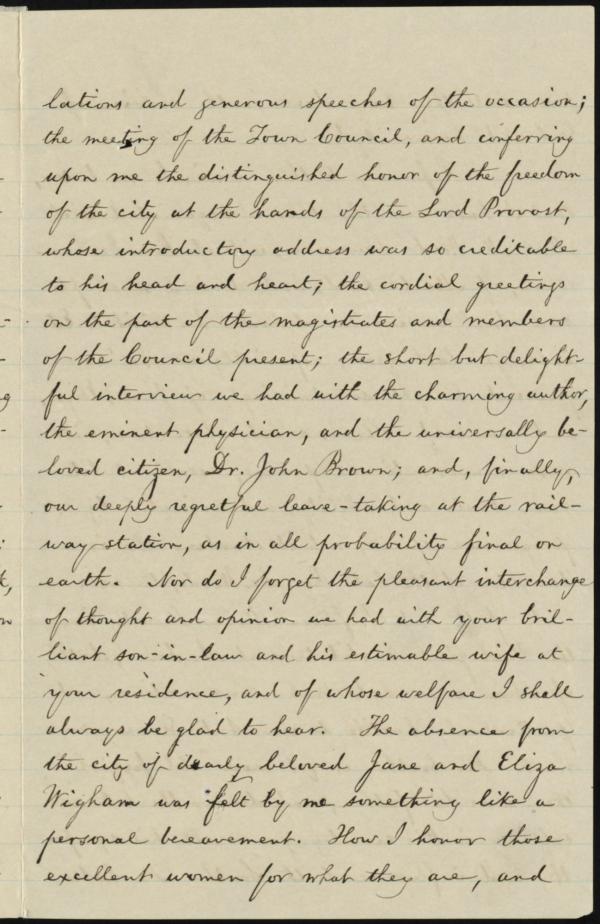 lations and generous speeches of the occasion;
the meeting of the Town Council, and conferring
upon me the distinguished honor of the freedom
of the city at the hands of the Lord Provost,
whose introductory address was so creditable
to his head and heart; the cordial greetings
on the part of the magistrates and members
of the Council present; the short but delight-
ful interview we had with the charming author,
the eminent physician, and the universally be-
loved citizen, Dr. John Brown; and, finally,
our deeply regretful leave-taking at the rail-
way-station, as in all probability final on
earth. Nor do I forget the pleasant interchange
of thought and opinion we had with your bril-
liant son-in-law and his estimable wife at
your residence, and of whose welfare I shall
always be glad to hear. The absence from
the city of dearly beloved Jane and Eliza
Wigham was felt by me something like a
personal bereavement. How I honor those
excellent women for what they are, and